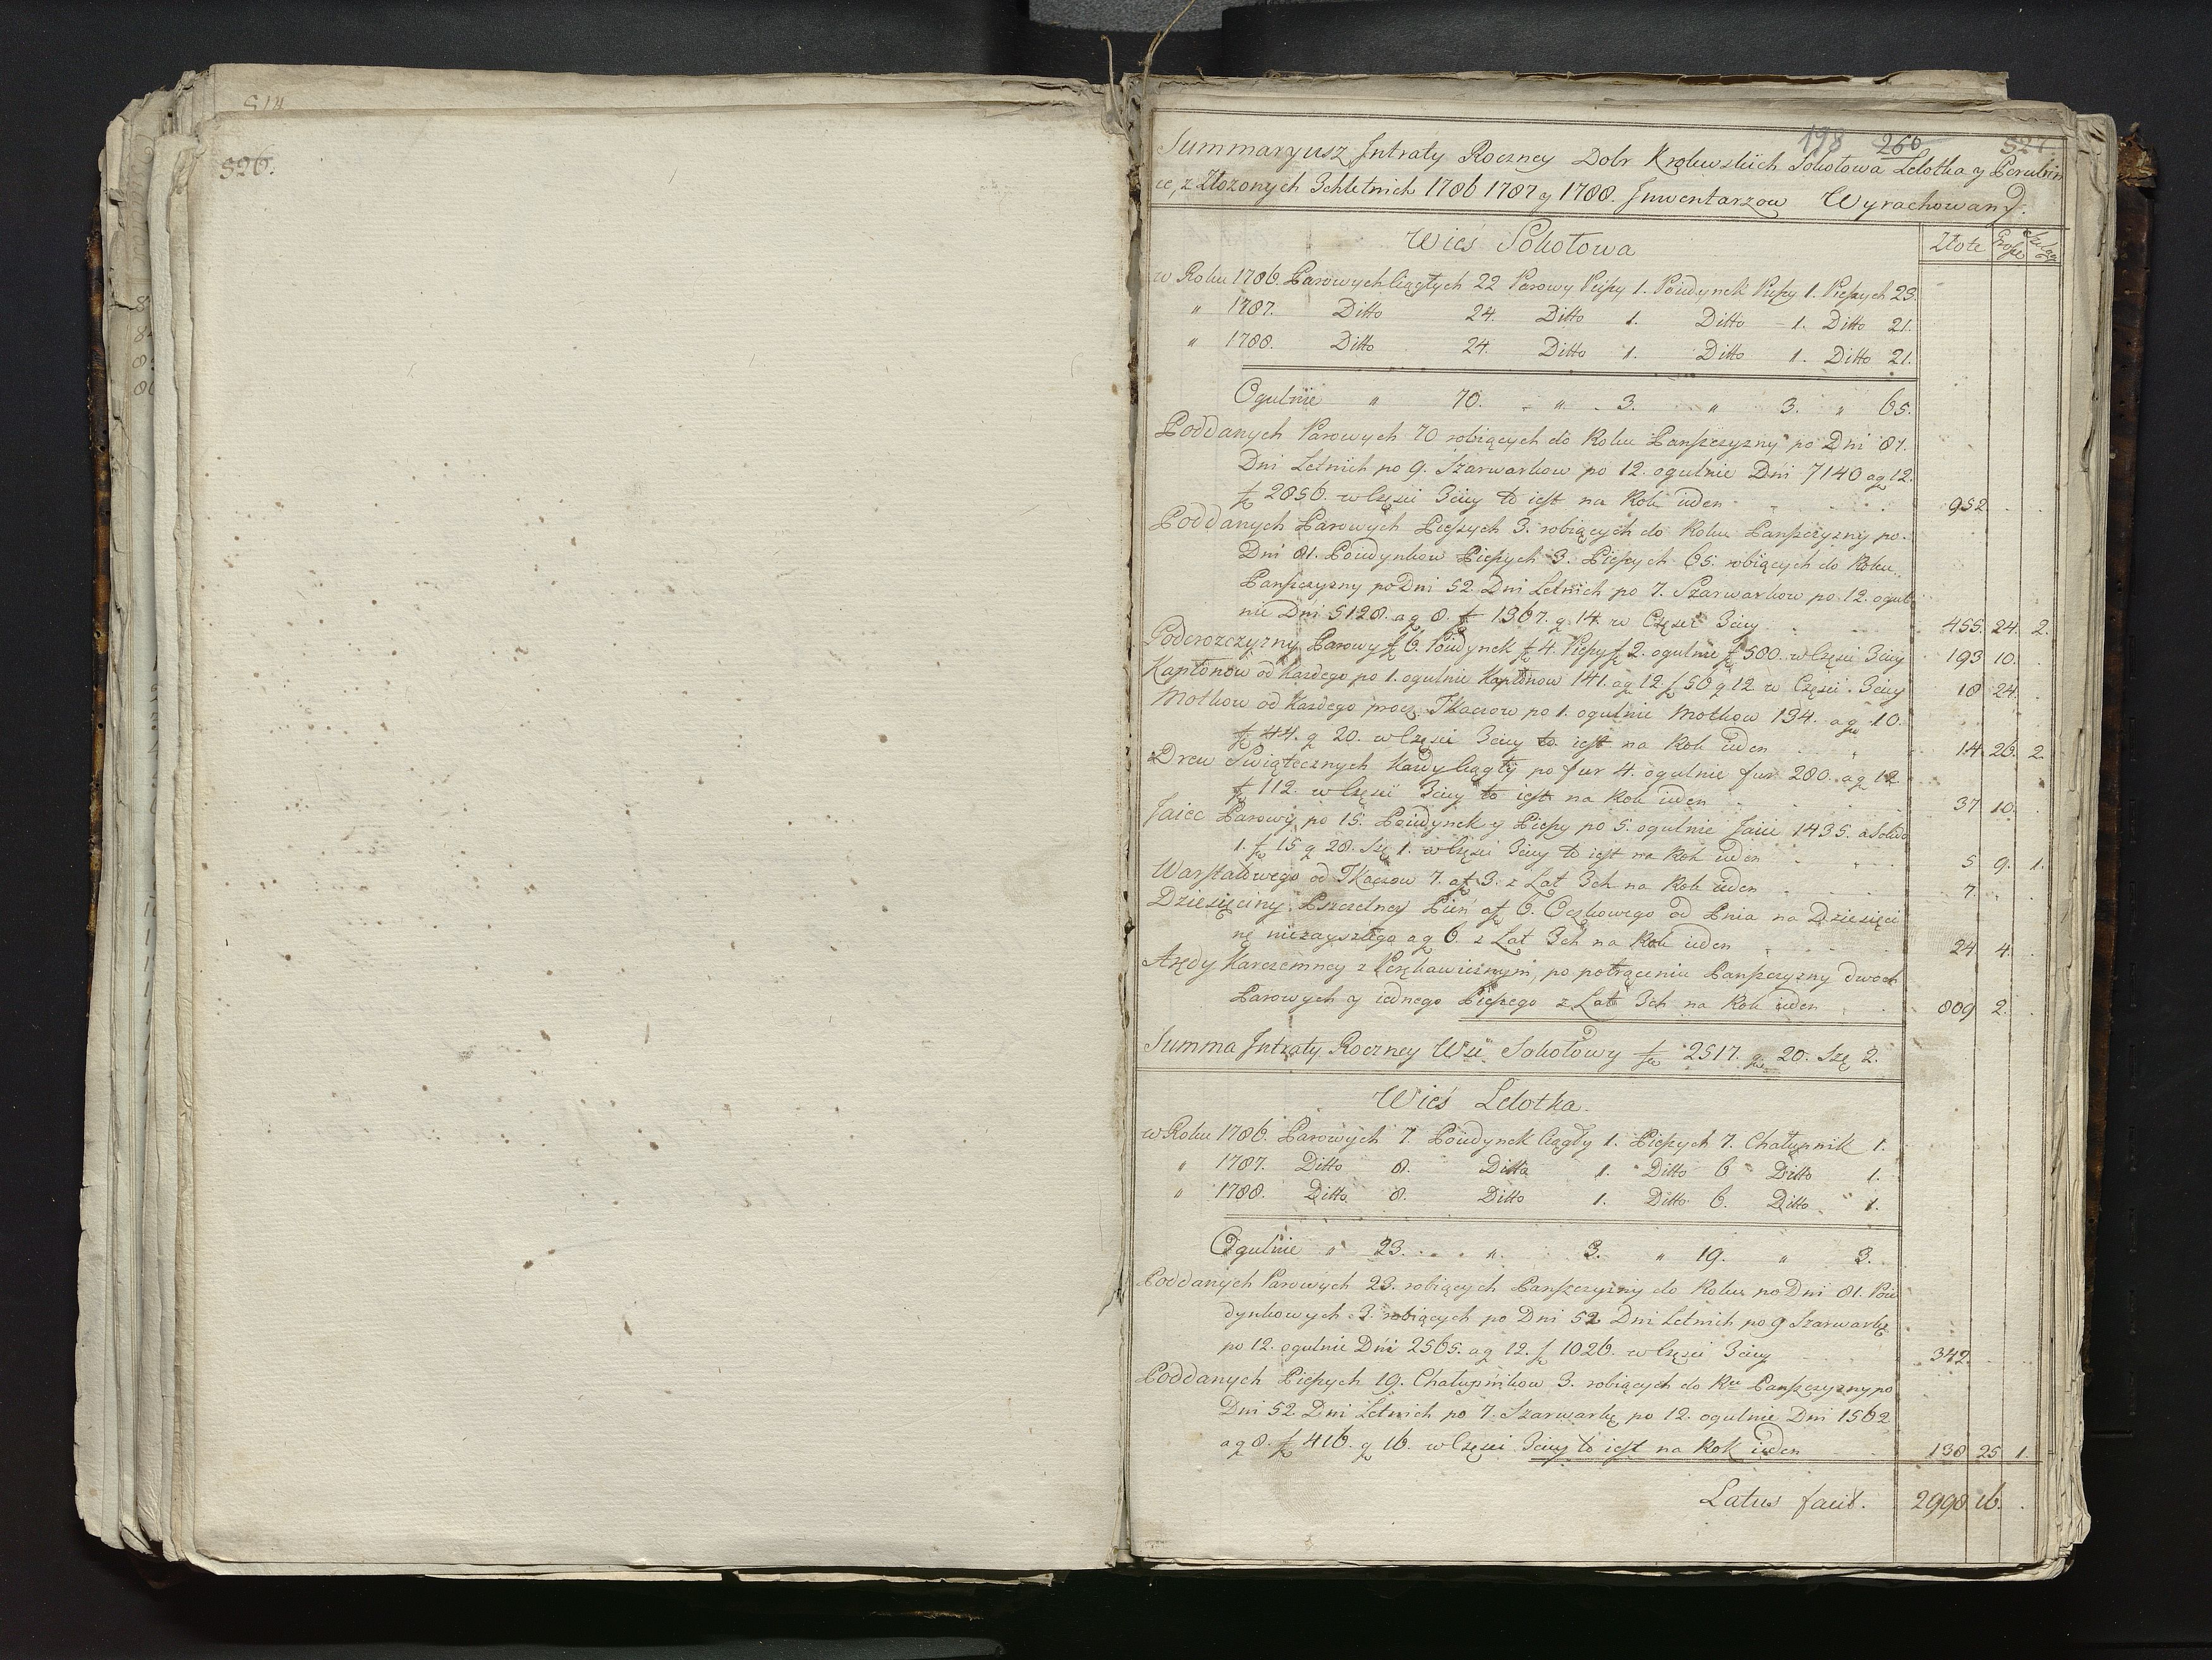 814
826.
198 260 827.
Summaryusz Jntraty Roczney Dobr Krolewskich Sokołowa Lelotka y Perubin
ce, z Złożonych 3chletnich 1786 1787 y 1788. Jnwentarzow Wyrachowany.
Wieś Sokołowa
Złote Grosze Szelągi
w Roku 1786. Parowych Ciągłych 22 Parowy Pieszy 1. Poiedynek Pieszy 1. Pieszych 23.
" 1787. Ditto 24. Ditto 1. Ditto 1. Ditto 21.
" 1788. Ditto 24. Ditto 1. Ditto 1. Ditto 21.
Ogulnie " 70. " 3. " 3. " 65.
Poddanych Parowych 70 robiących do Roku Panszczyzny po Dni 81.
Dni Letnich po 9. Szarwarkow po 12. ogulnie Dni 7140 a gr 12.
f 2856. w Częsci 3ciey to iest na Rok ieden 952.
Poddanych Parowych Pieszych 3. robiących do Roku Panszczyzny po
Dni 81. Poiedynkow Pieszych 3. Pieszych 65. robiących do Roku
Panszczyzny po Dni 52 Dni Letnich po 7. Szarwarkow po 12. ogul
nie Dni 5128. a g 8. f 1367. g 14. w Częsci 3ciey 455. 24. 2.
Poderozczyzny Parowy f 6. Poiedynek f 4. Pieszy f 2. ogulnie f 580. w Częsci 3ciey 193 10.
Kapłonow od Każdego po 1. ogulnie Kapłonow 141. a g 12 f 56 g 12 w Częsci 3ciey 18 24.
Motkow od Każdego procz Tkaczow po 1. ogulnie Motkow 134. a g 10.
f 44. g 20. w Częsci 3ciey to iest na Rok ieden 14 26. 2.
Drew Swiątecznych Każdy Ciągły po fur 4. ogulnie fur 280. a g 12
f 112. w Częsci 3ciey to iest na Rok ieden 37 10.
Jaiec Parowy po 15. Poiedynek y Pieszy po 5. ogulnie Jaiec 1435. a Solid
1. f 15 g 28. Szę 1. w Częsci 3ciey to iest na Rok ieden 5 9. 1.
Warsztatowego od Tkaczow 7. a f 3. z Lat 3ch na Rok ieden 7.
Dziesięciny Pszczelney Pień a f 6. Oczkowego od Pnia na Dziesięci
nę niezayszłego a g 6. z Lat 3ch na Rok ieden 24 4.
Arędy Karczemney z Porębawicznym, po potrąceniu Panszczyzny dwoch
Parowych y iednego Pieszego z Lat 3ch na Rok ieden 809 2.
Summa Jntraty Roczney Wsi Sokołowy f 2517. g 20. Szę 2.
Wieś Lelotka.
w Roku 1786. Parowych 7. Poiedynek Ciągły 1. Pieszych 7. Chałupnik 1.
" 1787. Ditto 8. Ditto 1. Ditto 6 Ditto 1.
" 1788. Ditto 8. Ditto 1. Ditto 6. Ditto 1.
Ogulnie " 23. " 3. " 19. " 3.
Poddanych Parowych 23. robiących Panszczyzny do Roku po Dni 81. Poie
dynkowych 3. robiących po Dni 52 Dni Letnich po 9 Szarwarkę
po 12. ogulnie Dni 2565. a g 12. f 1026. w Częsci 3ciey 342.
Poddanych Pieszych 19. Chałupnikow 3. robiących do Ru Panszczyzny po
Dni 52 Dni Letnich po 7. Szarwarkę po 12. ogulnie Dni 1562
a g 8. f 416. g 16. w Częsci 3ciey to iest na Rok ieden 138 25 1.
Latus facit. 2998 16.